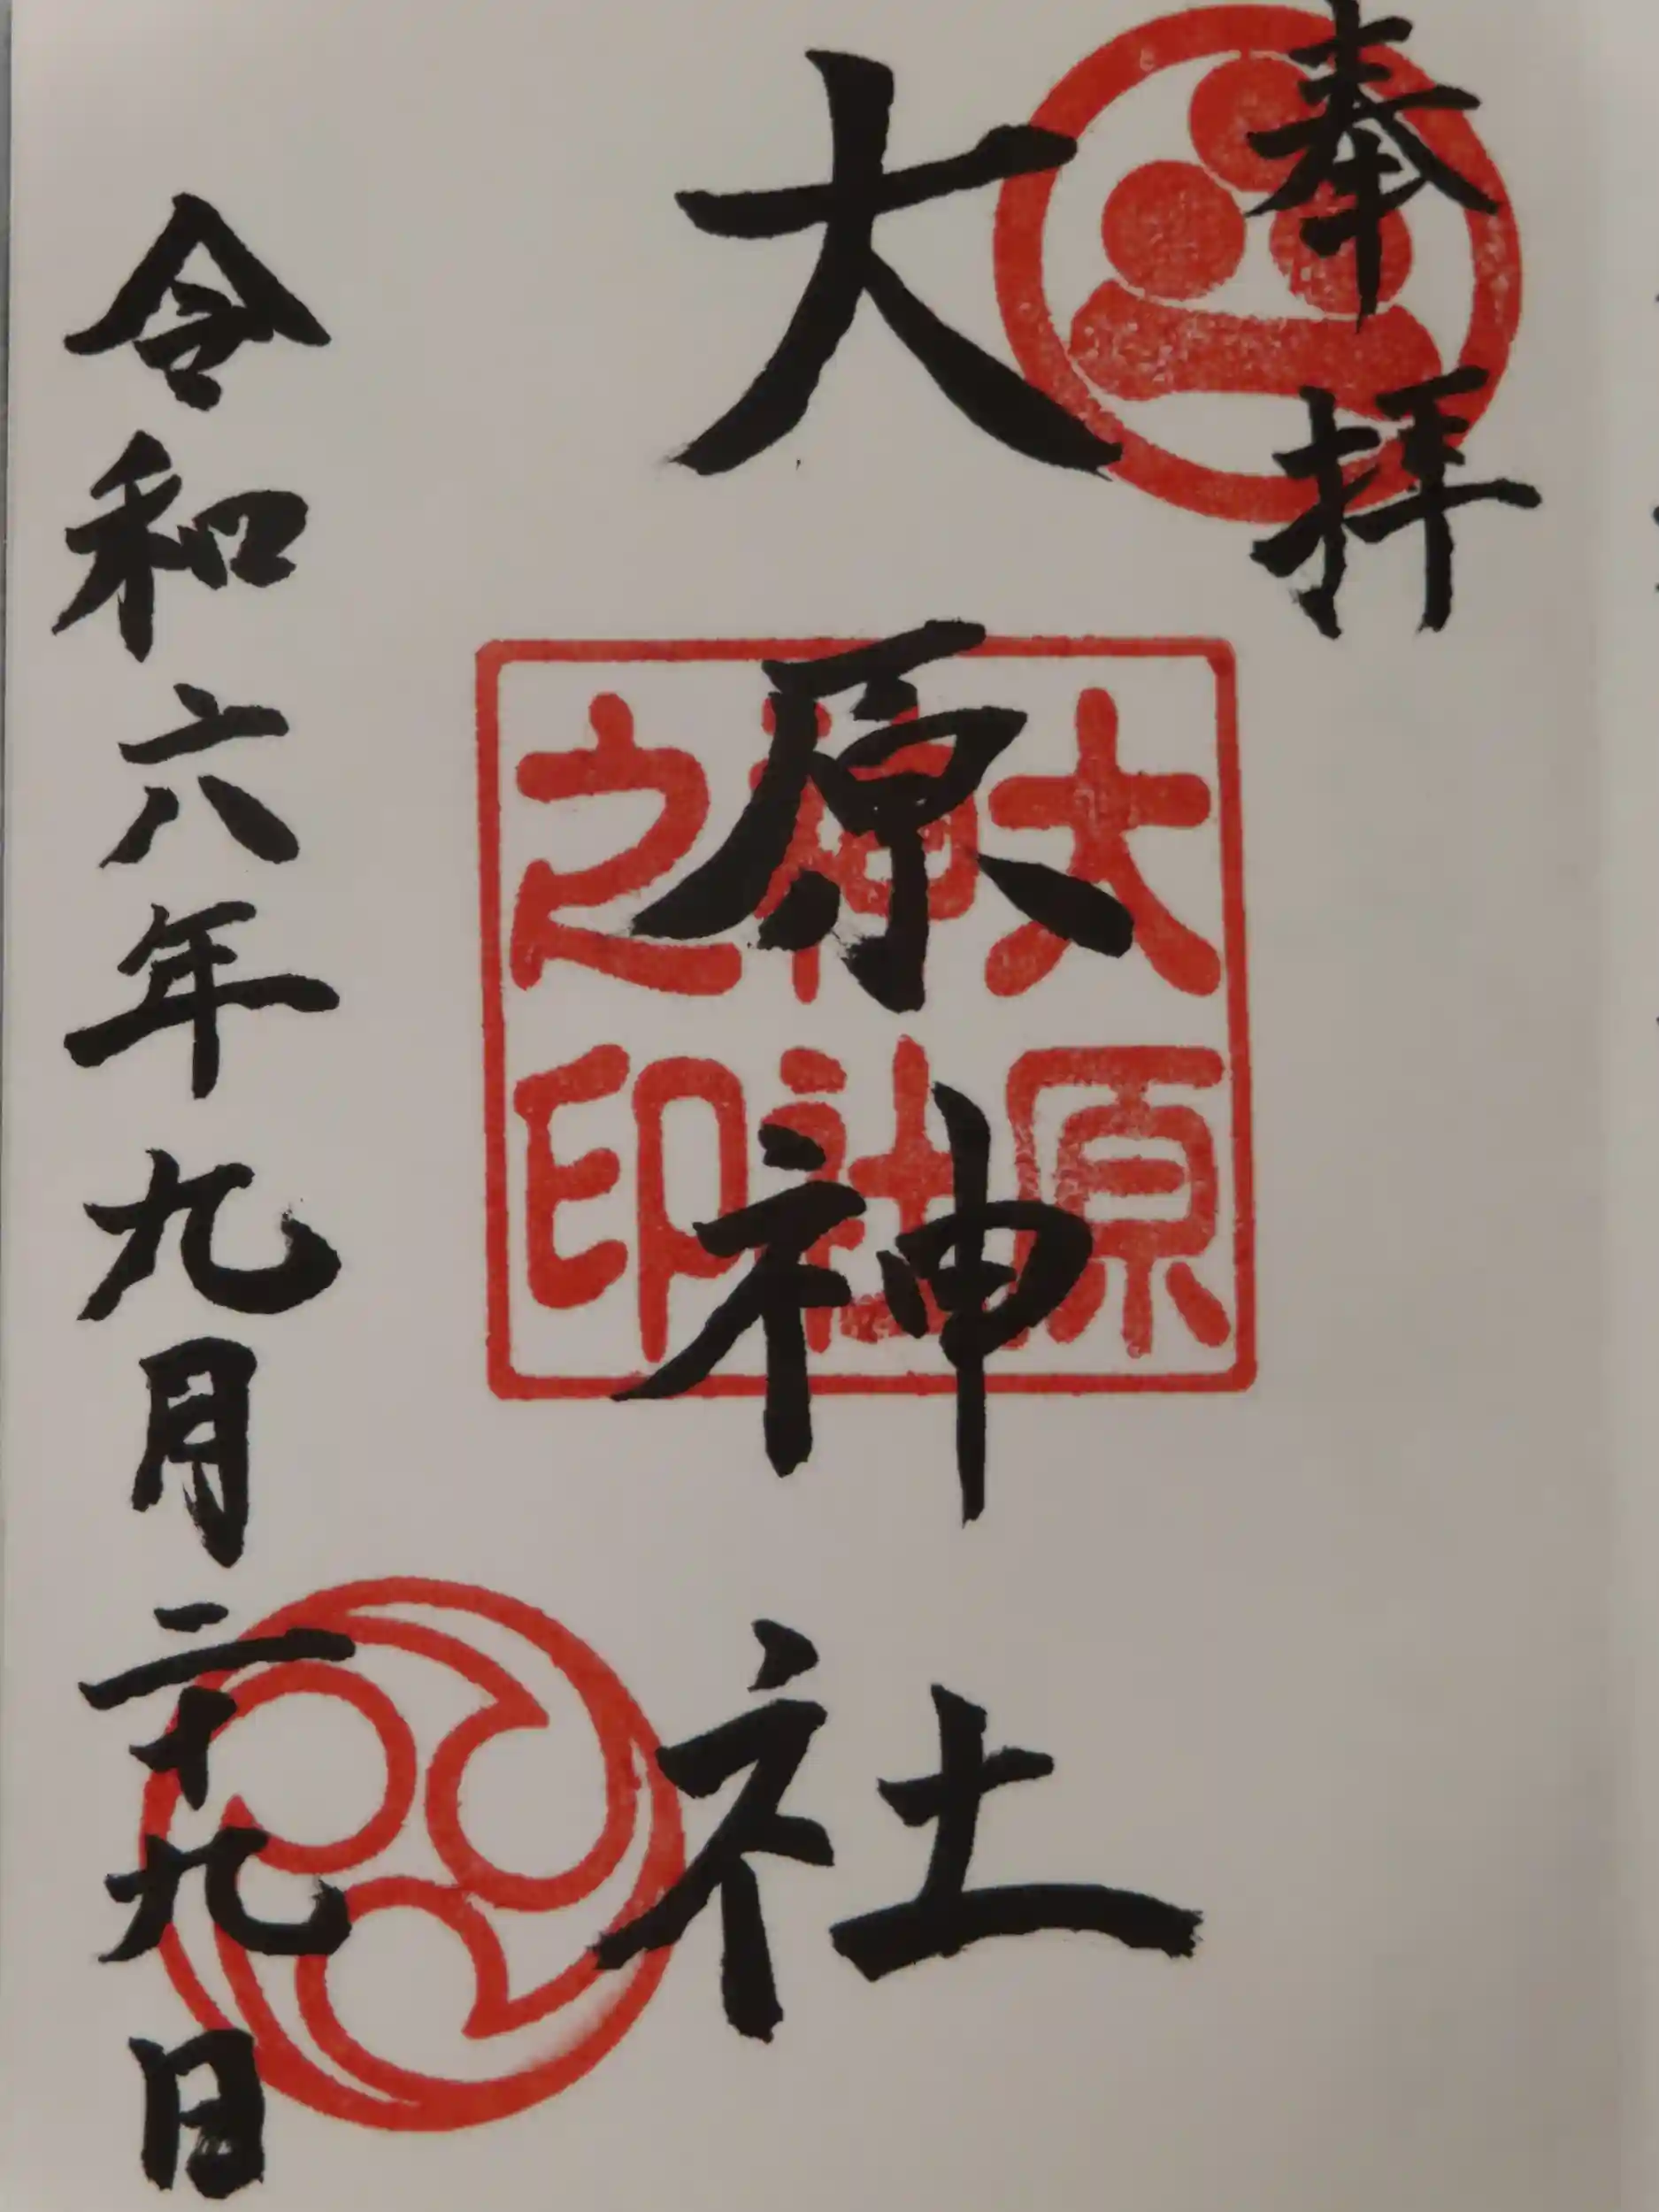 奉拝
大原神社
大原
神社
之印
令和六年九月二十九日